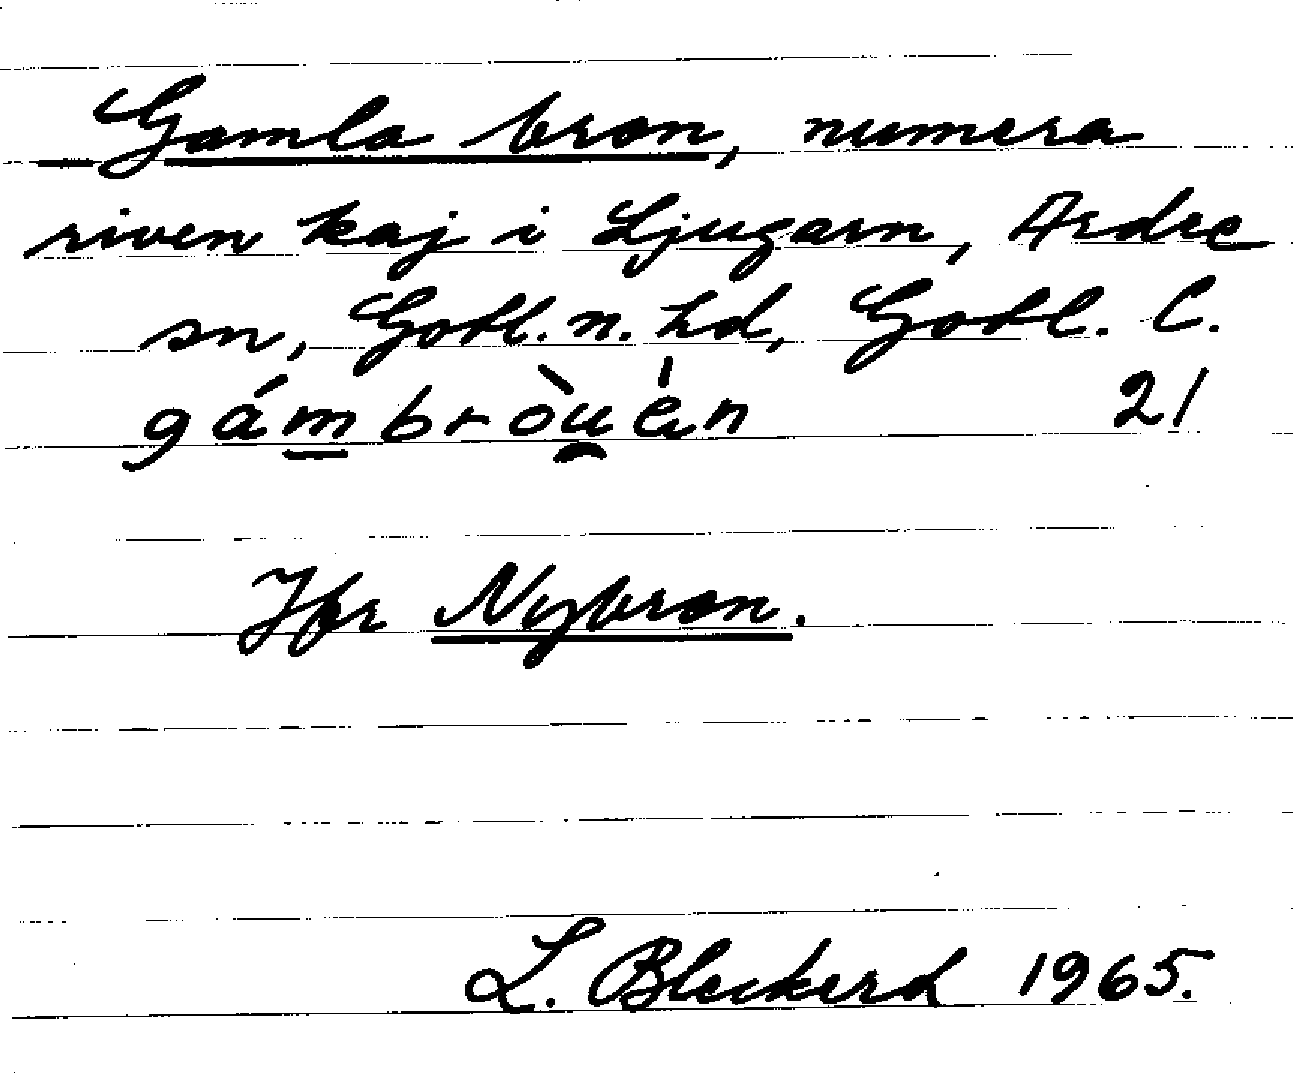 Gamla bron, numera
riven kaj i Ljugarn, Ardre
sn, Gotl. n. hd, Gotl. l.
gámbròu̯èn 21
Jfr Nybron.
L. Bleckerd 1965.